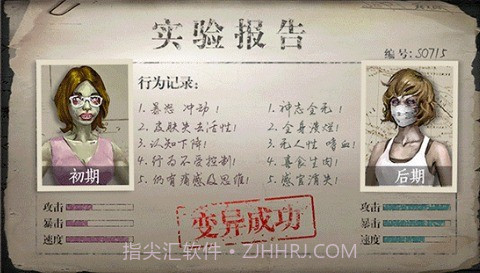 实验报告
编号: S0715
行为记录:
1. 暴怒 冲动! 1. 神志全无!
2. 皮肤失去活性! 2. 全身溃烂!
3. 认知下降! 3. 无人性 嗜血!
4. 行为不受控制! 4. 喜食生肉!
5. 仍有痛感及思维! 5. 感官消失!
初期 后期
变异成功
攻击 攻击
暴击 暴击
速度 速度
指尖汇软件·ZJHHRJ.COM